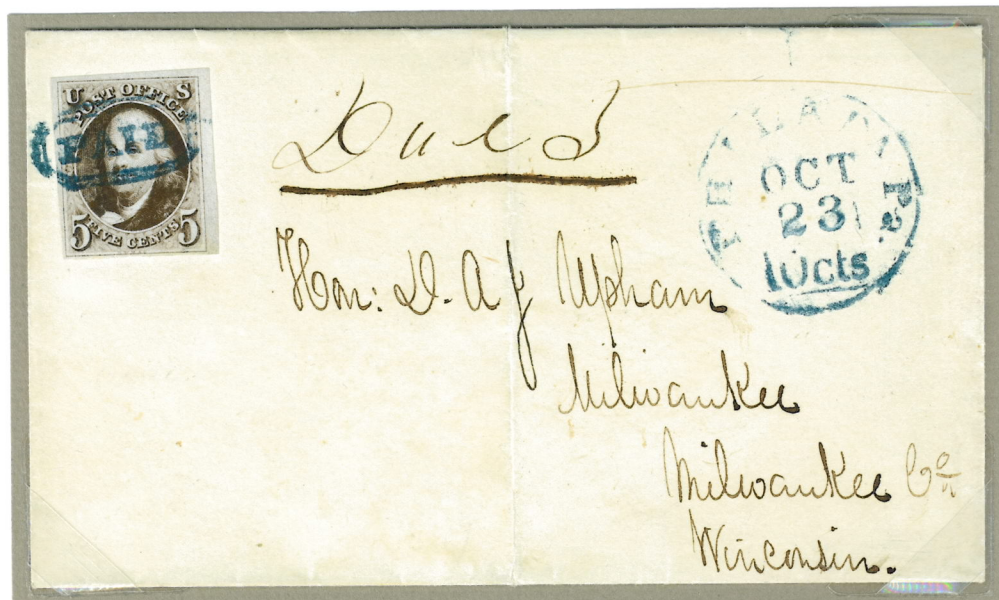 U S
POST OFFICE
PAID
5 FIVE CENTS 5
Due 5
PHILADA. Pa.
OCT
23
10cts
Hon: D. A J Upham
Milwaukee
Milwaukee Co
Winconsin.